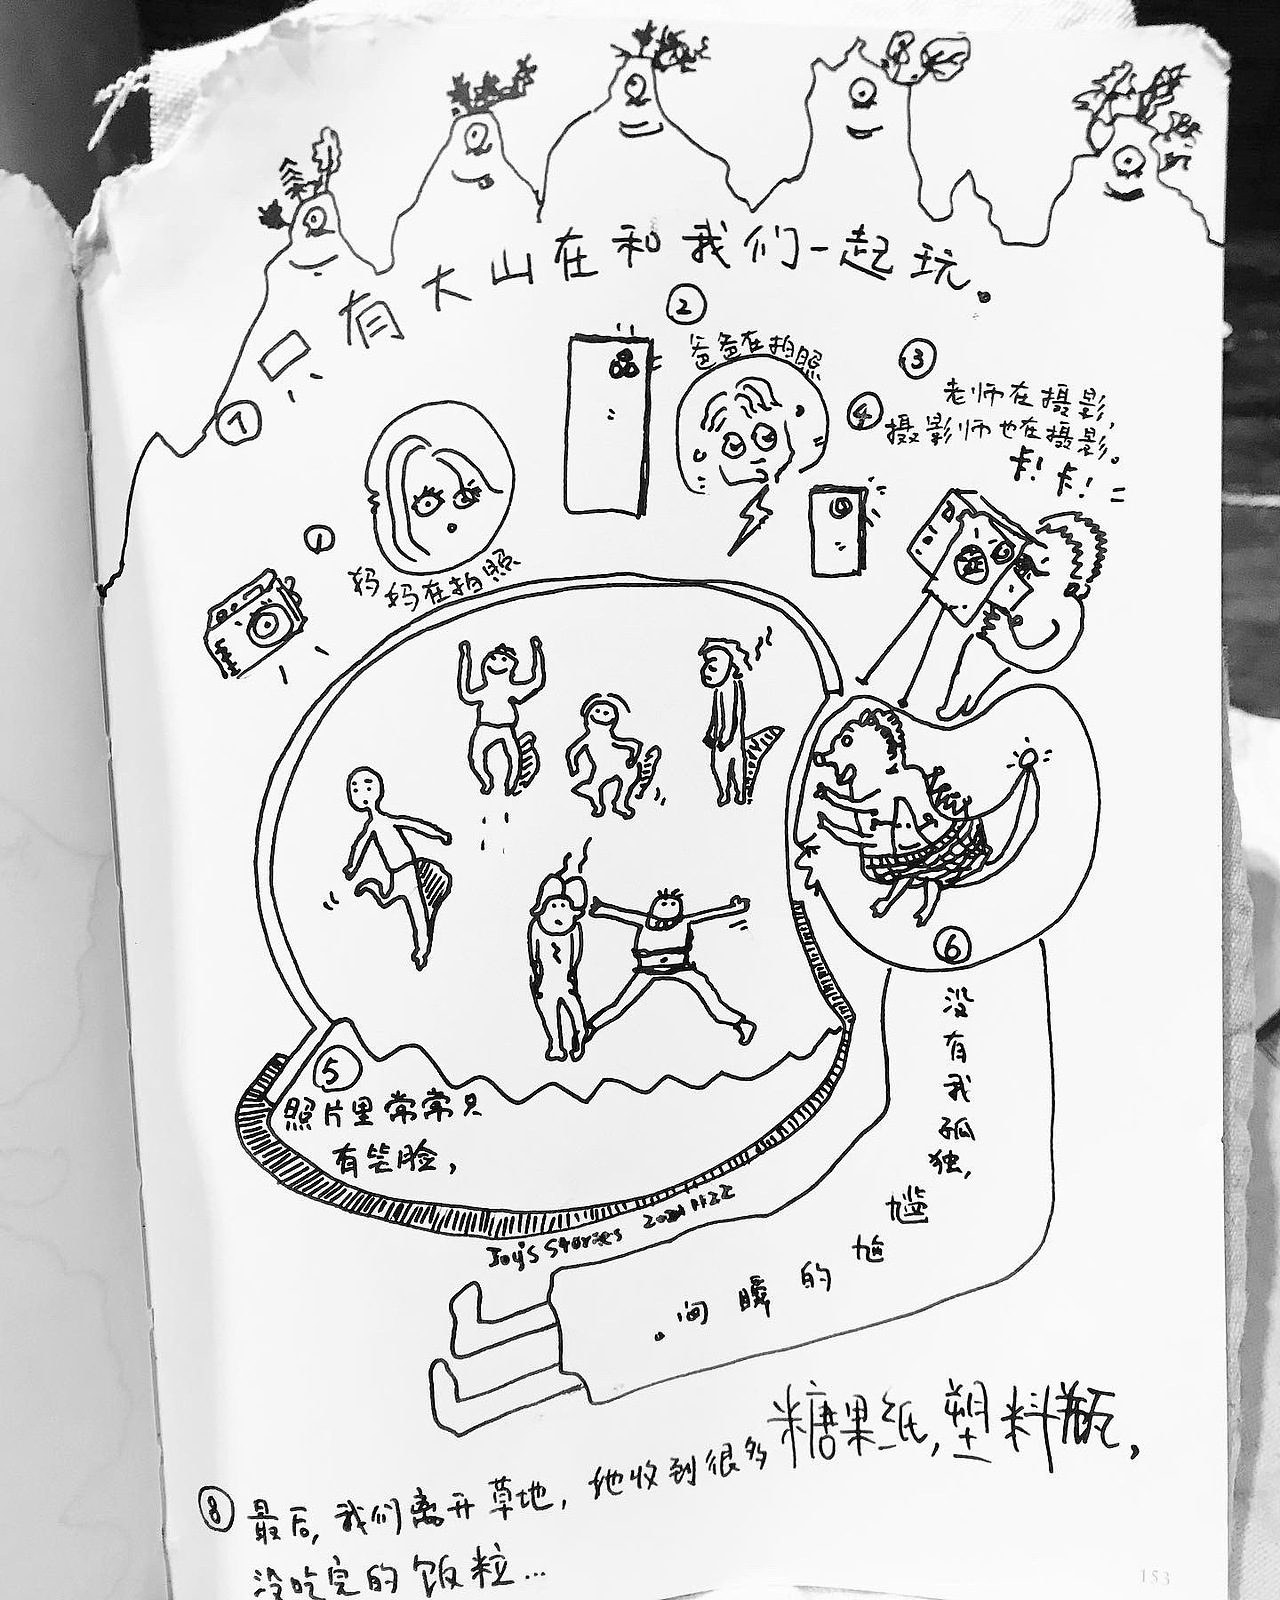 ①
妈妈在拍照
②
爸爸在拍照
③
老师在摄影，
④
摄影师也在摄影。
卡！卡！
⑤
照片里常常只
有笑脸，
⑥
没有我孤独，
尴尬的瞬间。
⑦
只有大山在和我们一起玩。
Joy's Stories
⑧
最后，我们离开草地，她收到很多糖果纸，塑料瓶，
没吃完的饭粒...
153